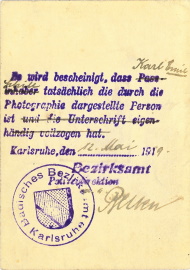 Karl Emil
Es wird bescheinigt, dass Pass-
inhaber tatsächlich die durch die
Photographie dargestellte Person
ist und die Unterschrift eigen-
händig vollzogen hat.
Karlsruhe, den 12. Mai 1919.
Bezirksamt
Polizeidirektion
Badisches Bezirksamt Karlsruhe